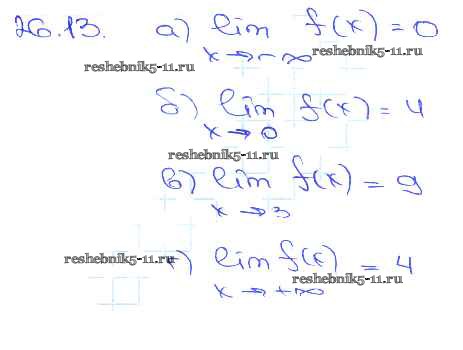 26.13. а) lim f(x) = 0
x → -∞
reshebnik5-11.ru
reshebnik5-11.ru
б) lim f(x) = 4
x → 0
reshebnik5-11.ru
в) lim f(x) = 9
x → 3
reshebnik5-11.ru
г) lim f(x) = 4
reshebnik5-11.ru
x → +∞